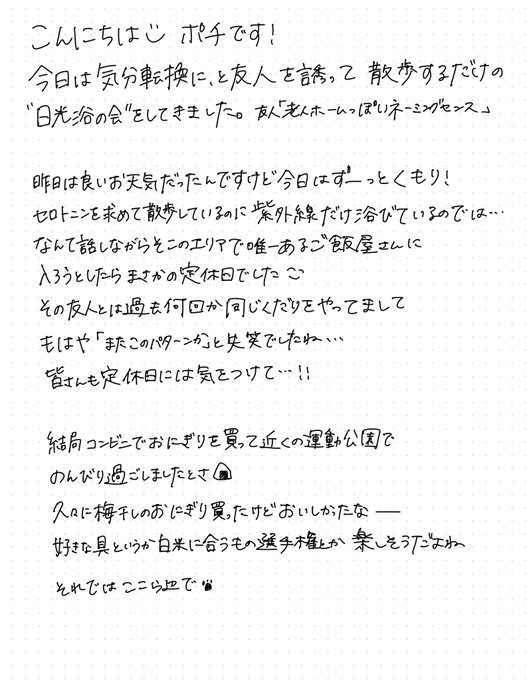 こんにちは ポチです!
今日は気分転換に、と友人を誘って 散歩するだけの
"日光浴の会"をしてきました。友人「老人ホームっぽいネーミングセンス」
昨日は良いお天気だったんですけど今日はずーっとくもり!
セロトニンを求めて散歩しているのに紫外線だけ浴びているのでは…
なんて話しながらそこのエリアで唯一あるご飯屋さんに
入ろうとしたらまさかの定休日でした
その友人とは過去何回か同じくだりをやってまして
もはや「またこのパターンか」と失笑でしたね…
皆さんも定休日には気をつけて…!!
結局コンビニでおにぎりを買って近くの運動公園で
のんびり過ごしましたとさ
久々に梅干しのおにぎり買ったけどおいしかったな ー
好きな具というか白米に合うもの選手権とか 楽しそうだよね
それでは ここら辺で